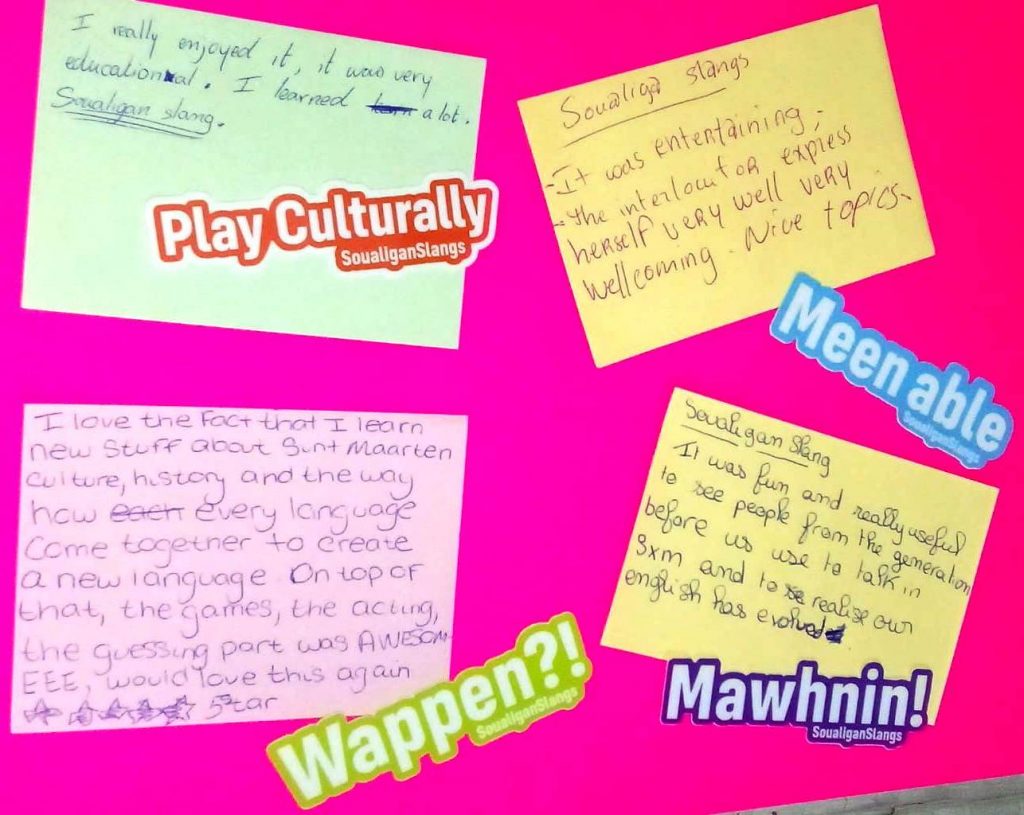 I really enjoyed it, it was very
educational. I learned a lot.
Soualigan slang.
Play Culturally
SoualiganSlangs
Soualiga slangs
-It was entertaining,
-the interloutor express
herself very well very
wellcoming. Nice topics.
Meen able
SoualiganSlangs
I love the Fact that I learn
new stuff about Sint Maarten
culture, history and the way
how each every language
come together to create
a new language. On top of
that, the games, the acting,
the guessing part was AWESOM
EEE, would love this again
5 star
Wappen?!
SoualiganSlangs
Soualigan slang
It was fun and really useful
to see people from the generation
before us use to talk in
sxm and to realise our
english has evolved
Mawhnin!
SoualiganSlangs